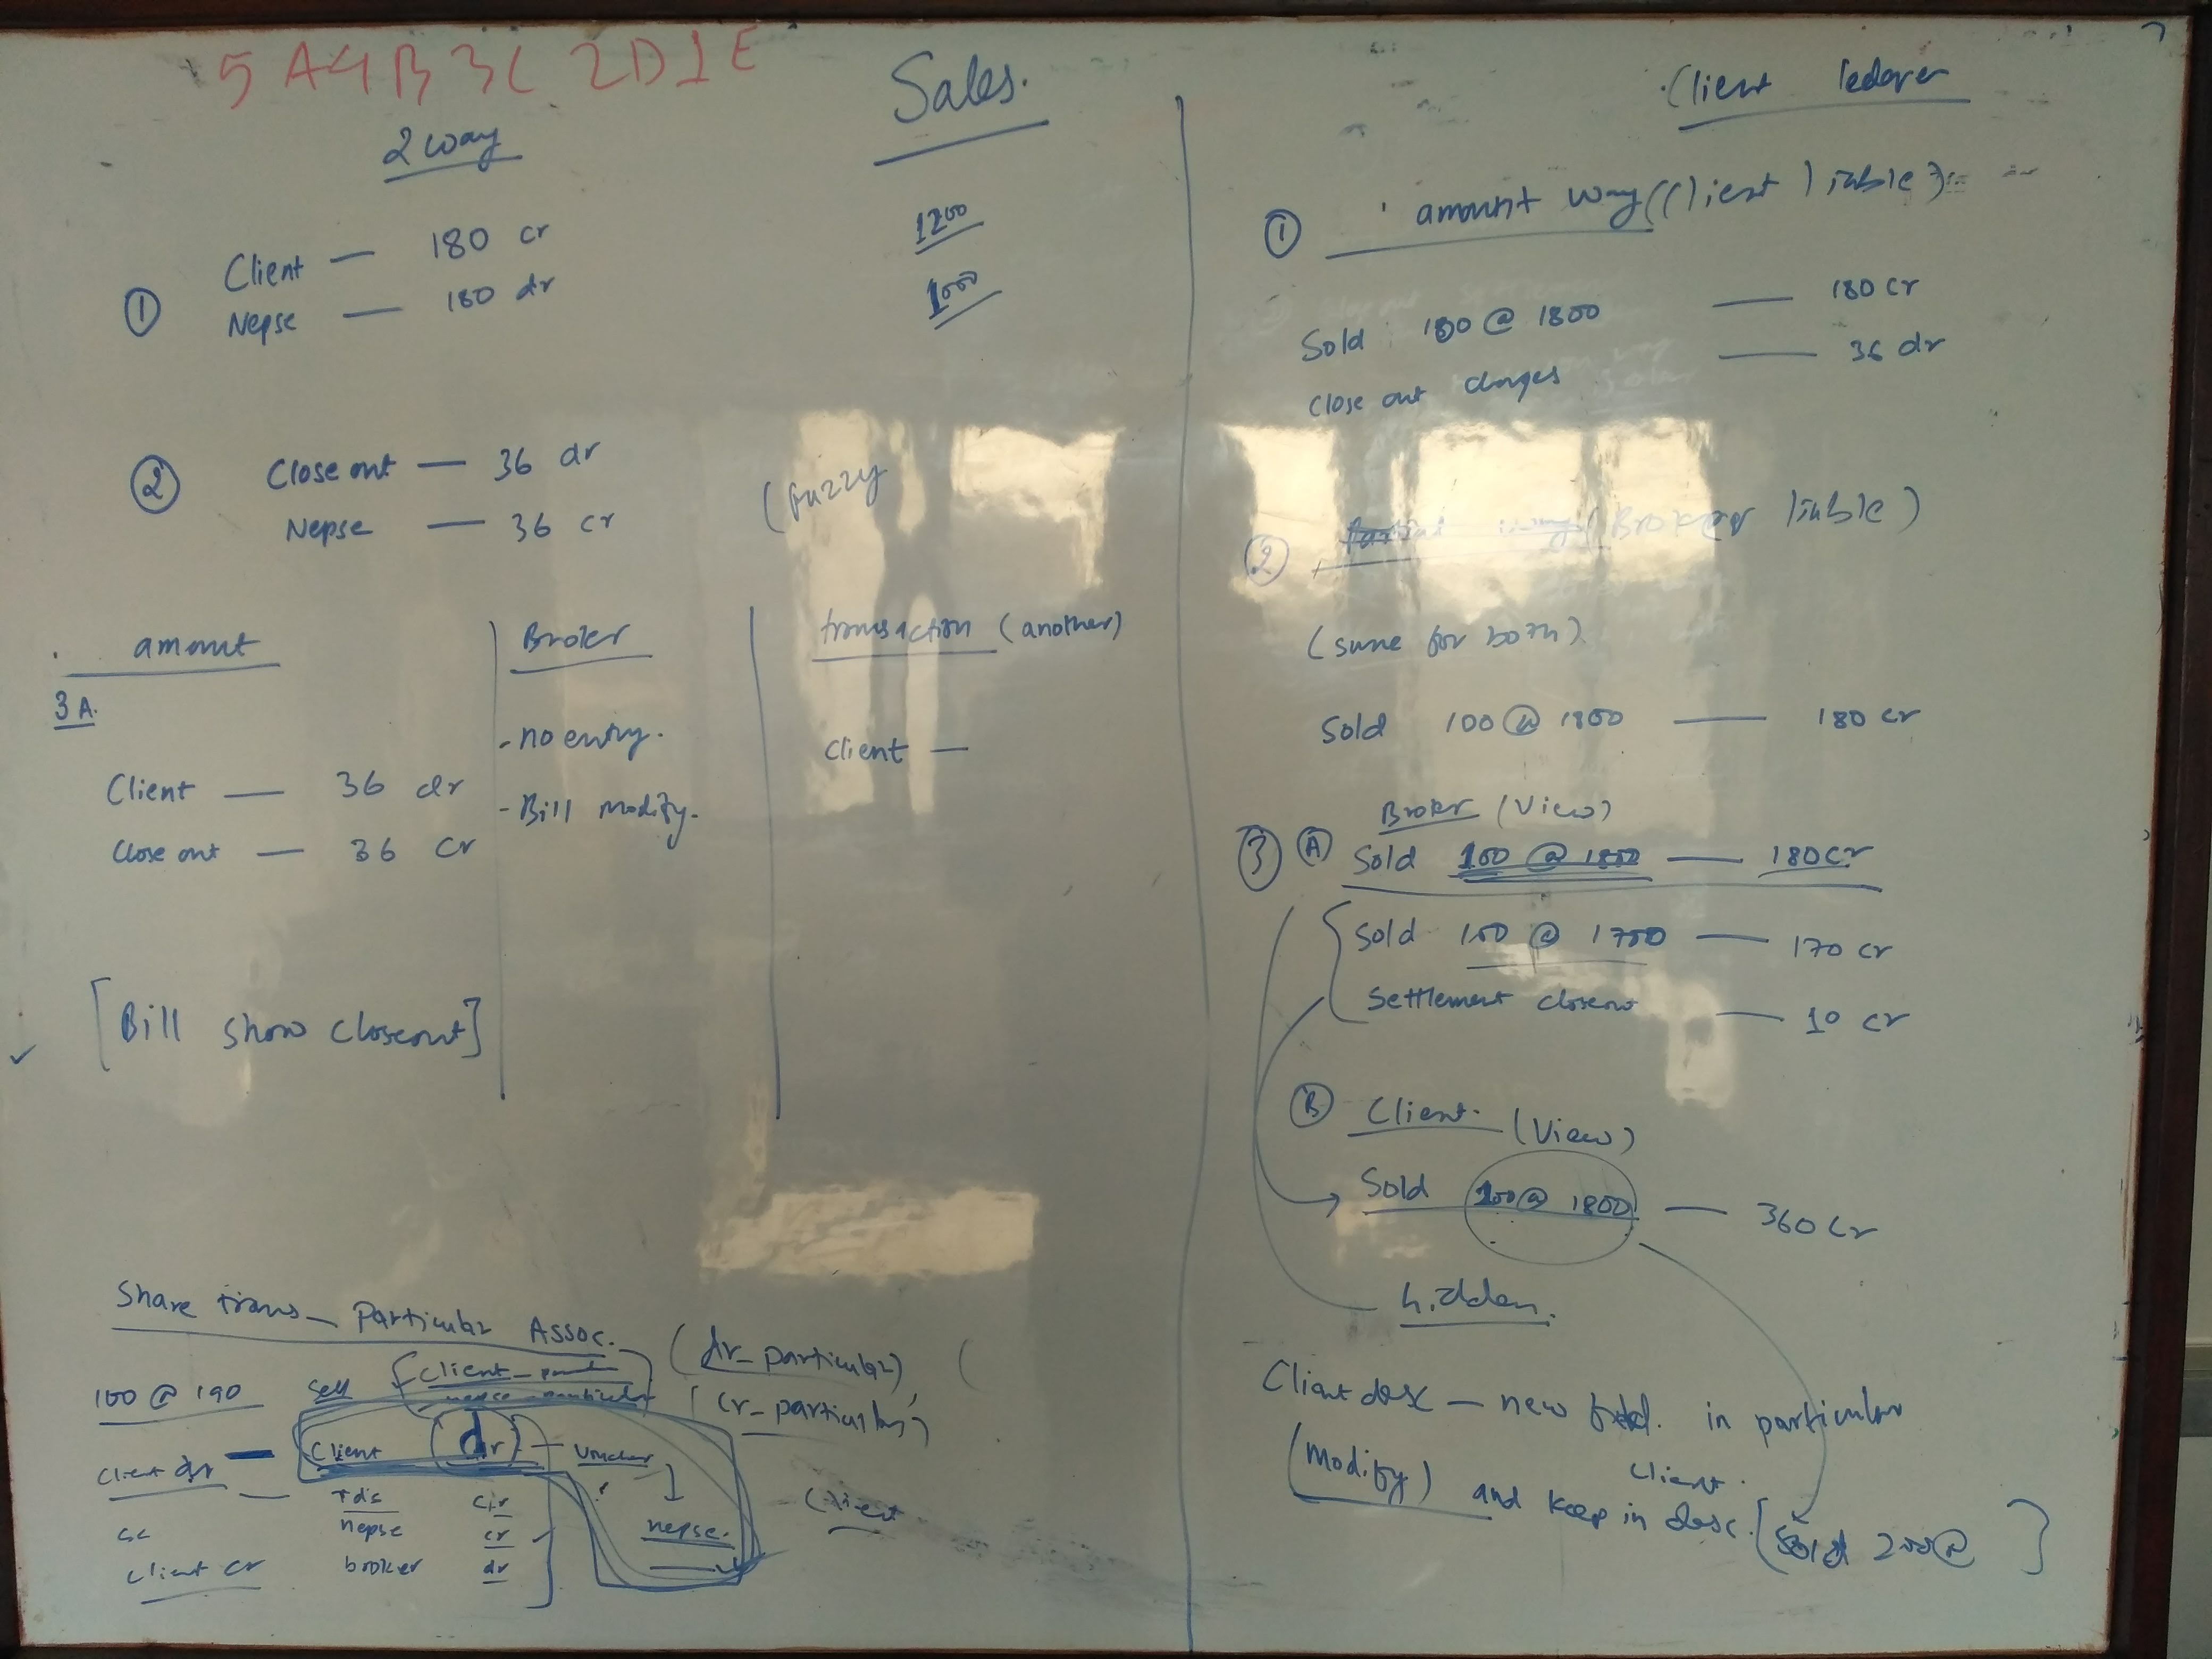 5A4B3C2D1E
2 way
Sales.
1200
1000
① Client — 180 cr
Nepse — 180 dr
② Close out — 36 dr
Nepse — 36 cr
(fuzzy
amount
3A.
Client — 36 dr
Close out — 36 cr
Broker
- no entry.
- Bill modify.
transaction (another)
client —
[Bill show closeout]
Share trans_ Particular Assoc.
(dr_particular)
(cr_particular)
100 @ 190 sell
client dr — Client dr — voucher
nepse.
tds
nepse cr
client cr broker dr
client
Client ledger
① amount way (Client liable)
Sold 100 @ 1800 — 180 cr
Close out charges — 36 dr
② (Broker liable)
(same for both)
Sold 100 @ 1800 — 180 cr
Broker (View)
③ Ⓐ Sold 100 @ 1800 — 180 cr
Sold 100 @ 1700 — 170 cr
Settlement closeout — 10 cr
Ⓑ Client. (View)
Sold 100 @ 1800 — 360 cr
hidden.
Client desc — new field. in particular
(Modify) and keep in client desc. [Sold 200@ ]